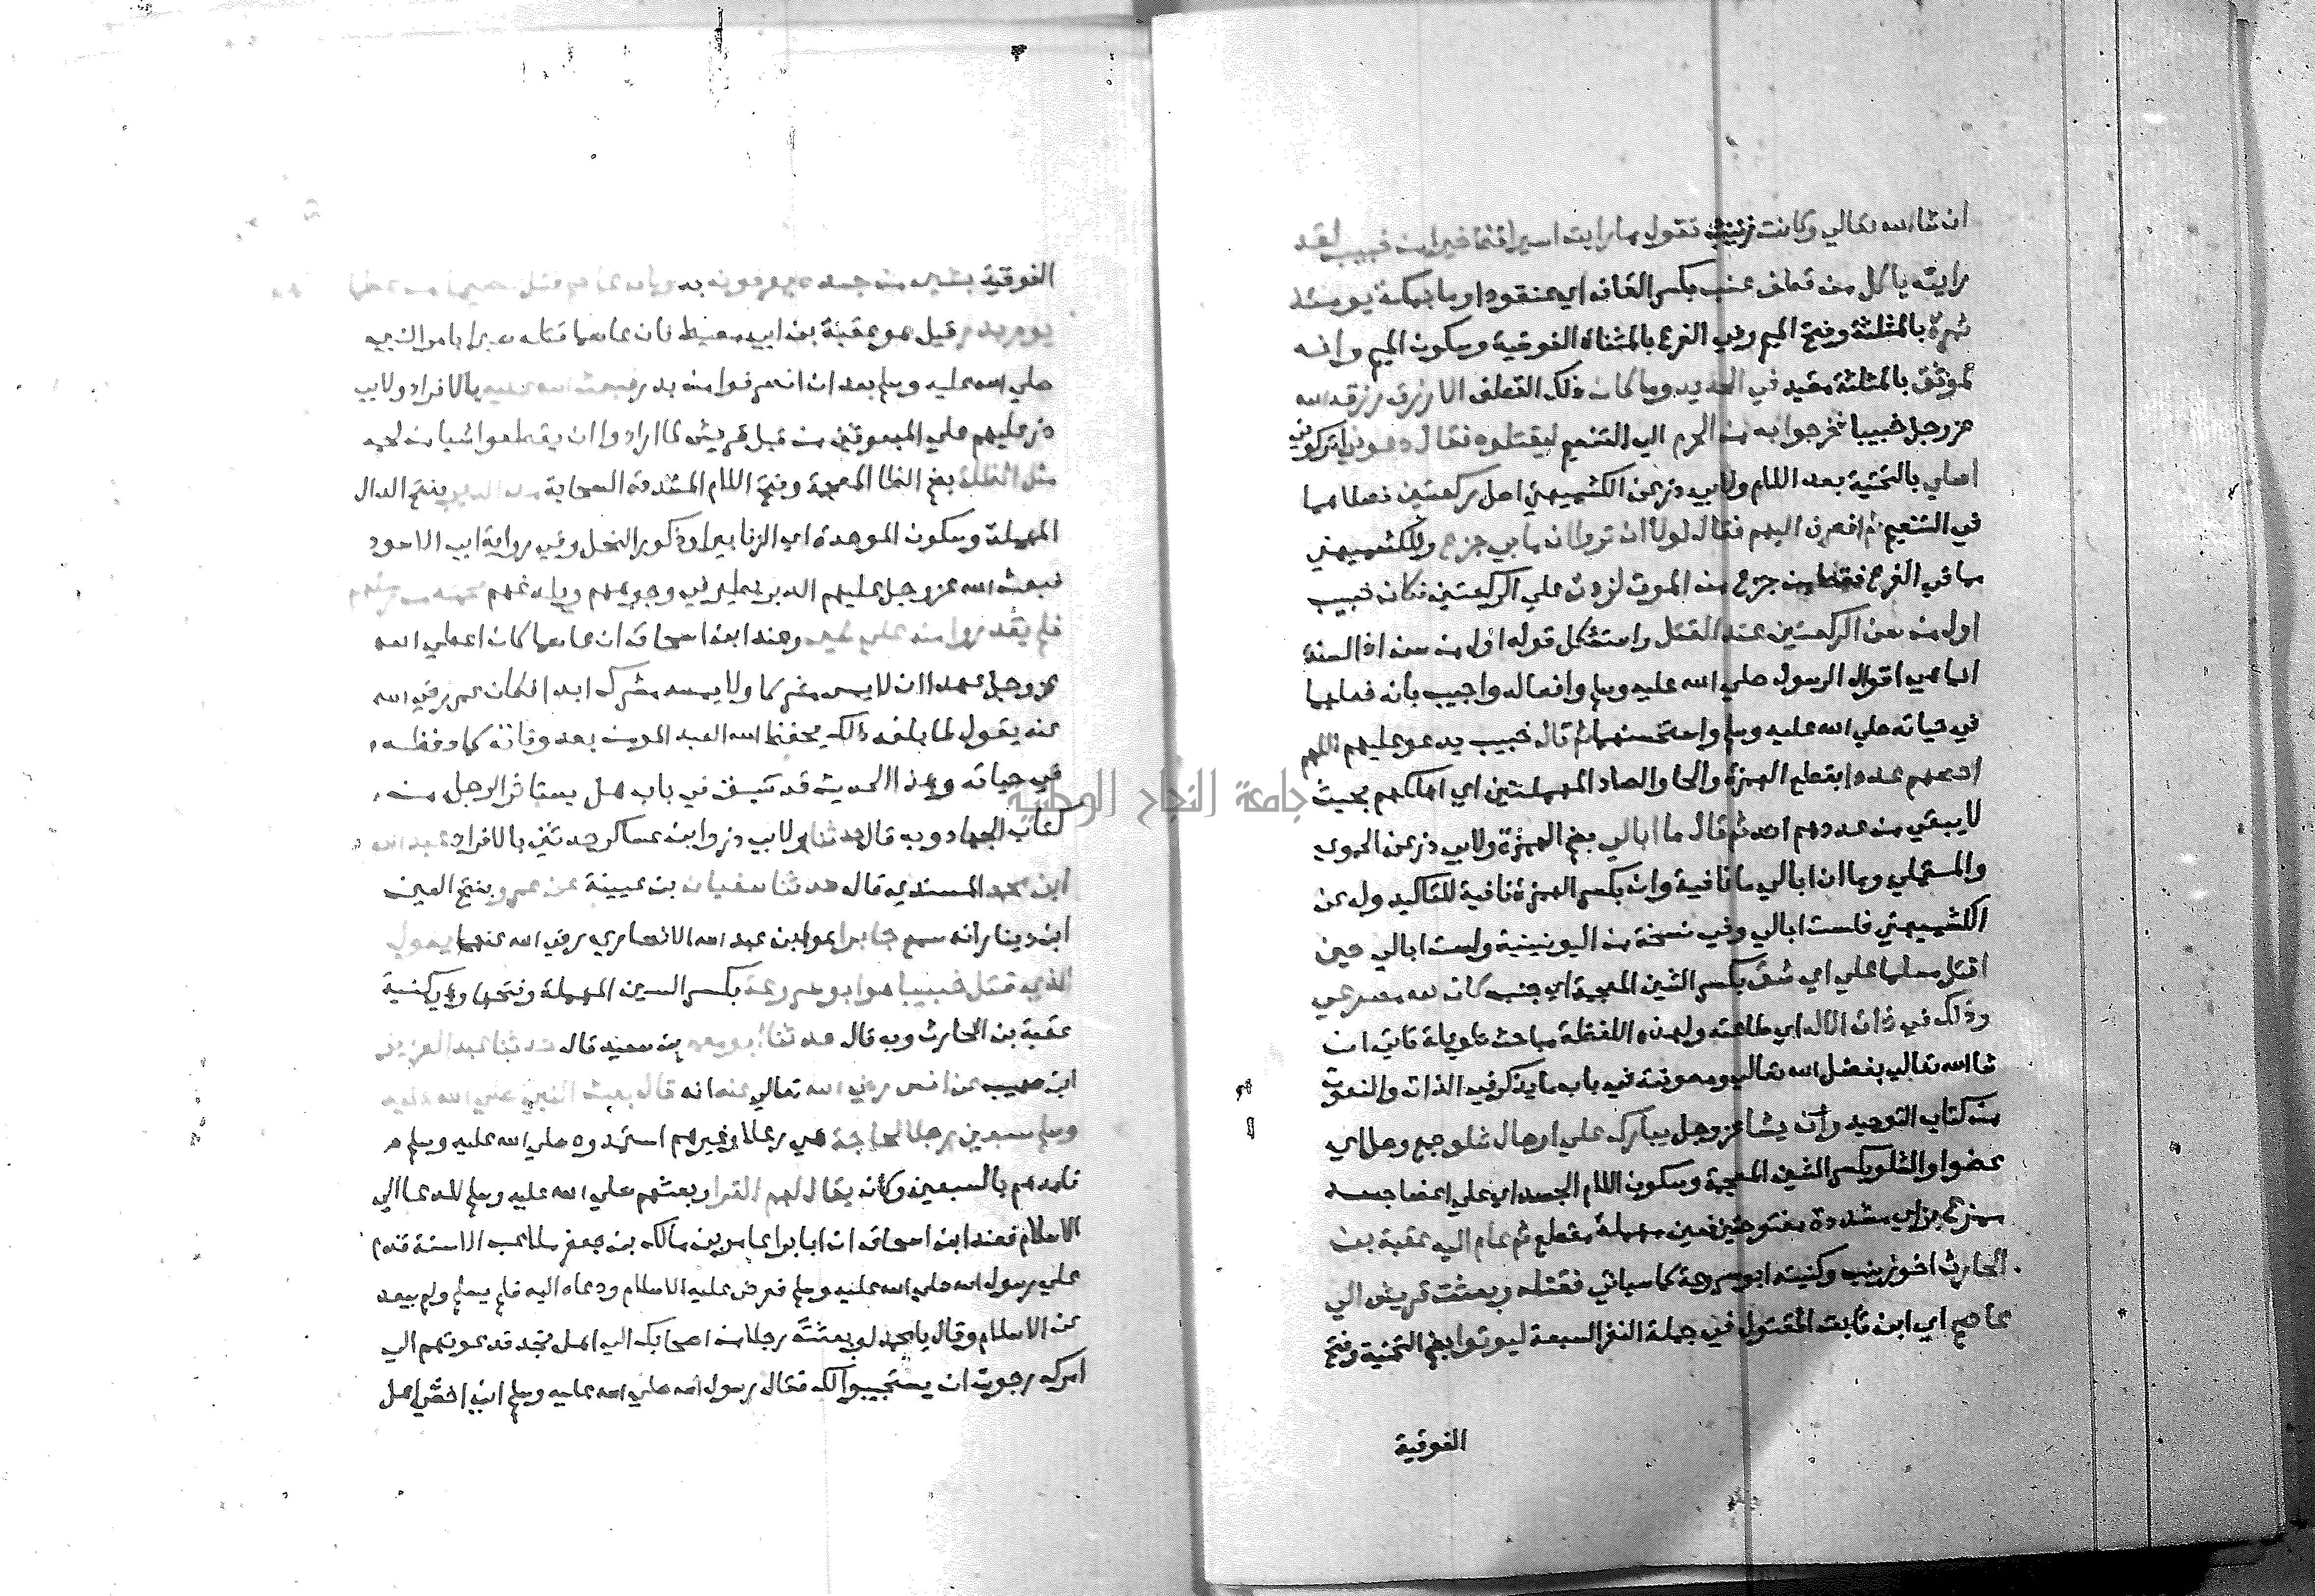 ان شا الله تعالي وكانت زينب تقول ما رايت اسيرا قط خيرا من خبيب لقد
رايته ياكل من قطف عنب بكسر القاف اي عنقود اوما بمكة يومئذ
ثمرة بالمثلثة وفتح الميم وفي الفرع بالمثناة الفوقية وسكون الميم وانه
لموثق بالمثلثة مقيد في الحديد وما كان ذلك القطف الا رزق رزقه الله
عز وجل خبيبا فخرجوا به من الحرم الي التنعيم ليقتلوه فقال دعوني اتركوني
اصلي بالتحتية بعد اللام ولابي ذر عن الكشميهني اصل ركعتين فصلاهما
في التنعيم ثم انصرف اليهم فقال لولا ان تروا ان ما بي جزع وللكشميهني
ما في الفرع فقط من جزع من الموت لزدت علي الركعتين فكان خبيب
اول من سن الركعتين عند القتل واستشكل قوله اول من سن اذ السنة
انما هي اقوال الرسول صلي الله عليه وسلم وافعاله واجيب بانه فعلهما
في حياته صلي الله عليه وسلم واستحسنهما ثم قال خبيب يدعو عليهم اللهم
احصهم عددا بقطع الهمزة والحا والصاد المهملتين اي اهلكهم بحيث
لا يبقي من عددهم احد ثم قال ما ابالي بضم الهمزة ولابي ذر عن الحموي
والمستملي وما ان ابالي ما نافية وان بكسر الهمزة نافية للتاكيد وله عن
الكشميهني فلست ابالي وفي نسخة من اليونينية ولست ابالي حين
اقتل مسلما علي اي شق بكسر الشين المعجمة اي جنب كان لله مصرعي
وذلك في ذات الاله اي طاعته ولهذه اللفظة مباحث طويلة تاتي ان
شا الله تعالي بفضل الله تعالي ومعونته في باب ما يذكر في الذات والنعوت
من كتاب التوحيد وان يشا عز وجل يبارك علي اوصال شلو جمع وصل اي
عضوا والشلو بكسر الشين المعجمة وسكون اللام الجسد اي علي اعضا جسد
ممزع بزاي مشددة مفتوحتين فعين مهملة مقطع ثم قام اليه عقبة بن
الحارث اخو زينب وكنيته ابو سروعة كما سياتي فقتله وبعثت قريش الي
عاصم اي ابن ثابت المقتول في جملة النفر السبعة ليوتوا بضم التحتية وفتح
الفوقية
الفوقية بشي من جسده يعرفونه به وكان عاصم قتل عظيما من عظمائهم
يوم بدر قيل هو عقبة بن ابي معيط فان عاصما قتله صبرا بامر النبي
صلي الله عليه وسلم بعد ان انصرفوا من بدر فبعث الله عليه بالافراد ولابي
ذر عليهم علي المبعوثين من قبل قريش لما ارادوا ان يقطعوا شيا من لحمه
مثل الظلة بضم الظا المعجمة وفتح اللام المشددة السحابة من الدبر بفتح الدال
المهملة وسكون الموحدة اي الزنابير او ذكور النحل وفي رواية ابي الاسود
فبعث الله عز وجل عليهم الدبر تطير في وجوههم وتلدغهم فحمته من رسلهم
فلم يقدروا منه علي شي وعند ابن اسحاق ان عاصما كان اعطي الله
عز وجل عهدا ان لا يمس مشركا ولا يمسه مشرك ابدا فكان عمر رضي الله
عنه يقول لما بلغه ذالك يحفظ الله العبد المومن بعد وفاته كما حفظه
في حياته وهذا الحديث قد سبق في باب هل يستاثر الرجل من
كتاب الجهاد وبه قال حدثنا ولابي ذر وابن عساكر حدثني بالافراد عبد الله
ابن محمد المسندي قال حدثنا سفيان بن عيينة عن عمرو بفتح العين
ابن دينار انه سمع جابرا هو ابن عبد الله الانصاري رضي الله عنهما يقول
الذي قتل خبيبا هو ابو سروعة بكسر السين المهملة وفتحها وهي كنية
عقبة بن الحارث وبه قال حدثنا ابو معمر بن سعيد قال حدثنا عبد العزيز
ابن صهيب عن انس رضي الله تعالي عنه انه قال بعث النبي صلي الله عليه
وسلم سبعين رجلا لحاجة هي رعلا وغيرهم استمدوه صلي الله عليه وسلم
فامدهم بالسبعين وكان يقال لهم القرا وبعثهم صلي الله عليه وسلم للدعا الي
الاسلام فعند ابن اسحاق ان ابا برا عامر بن مالك بن جعفر ملاعب الاسنة قدم
علي رسول الله صلي الله عليه وسلم فعرض عليه الاسلام ودعاه اليه فلم يسلم ولم يبعد
عن الاسلام وقال يا محمد لو بعثت رجالا من اصحابك الي اهل نجد فدعوتهم الي
امرك رجوت ان يستجيبوا لك فقال رسول الله صلي الله عليه وسلم اني اخشي اهل
جامعة النجاح الوطنية